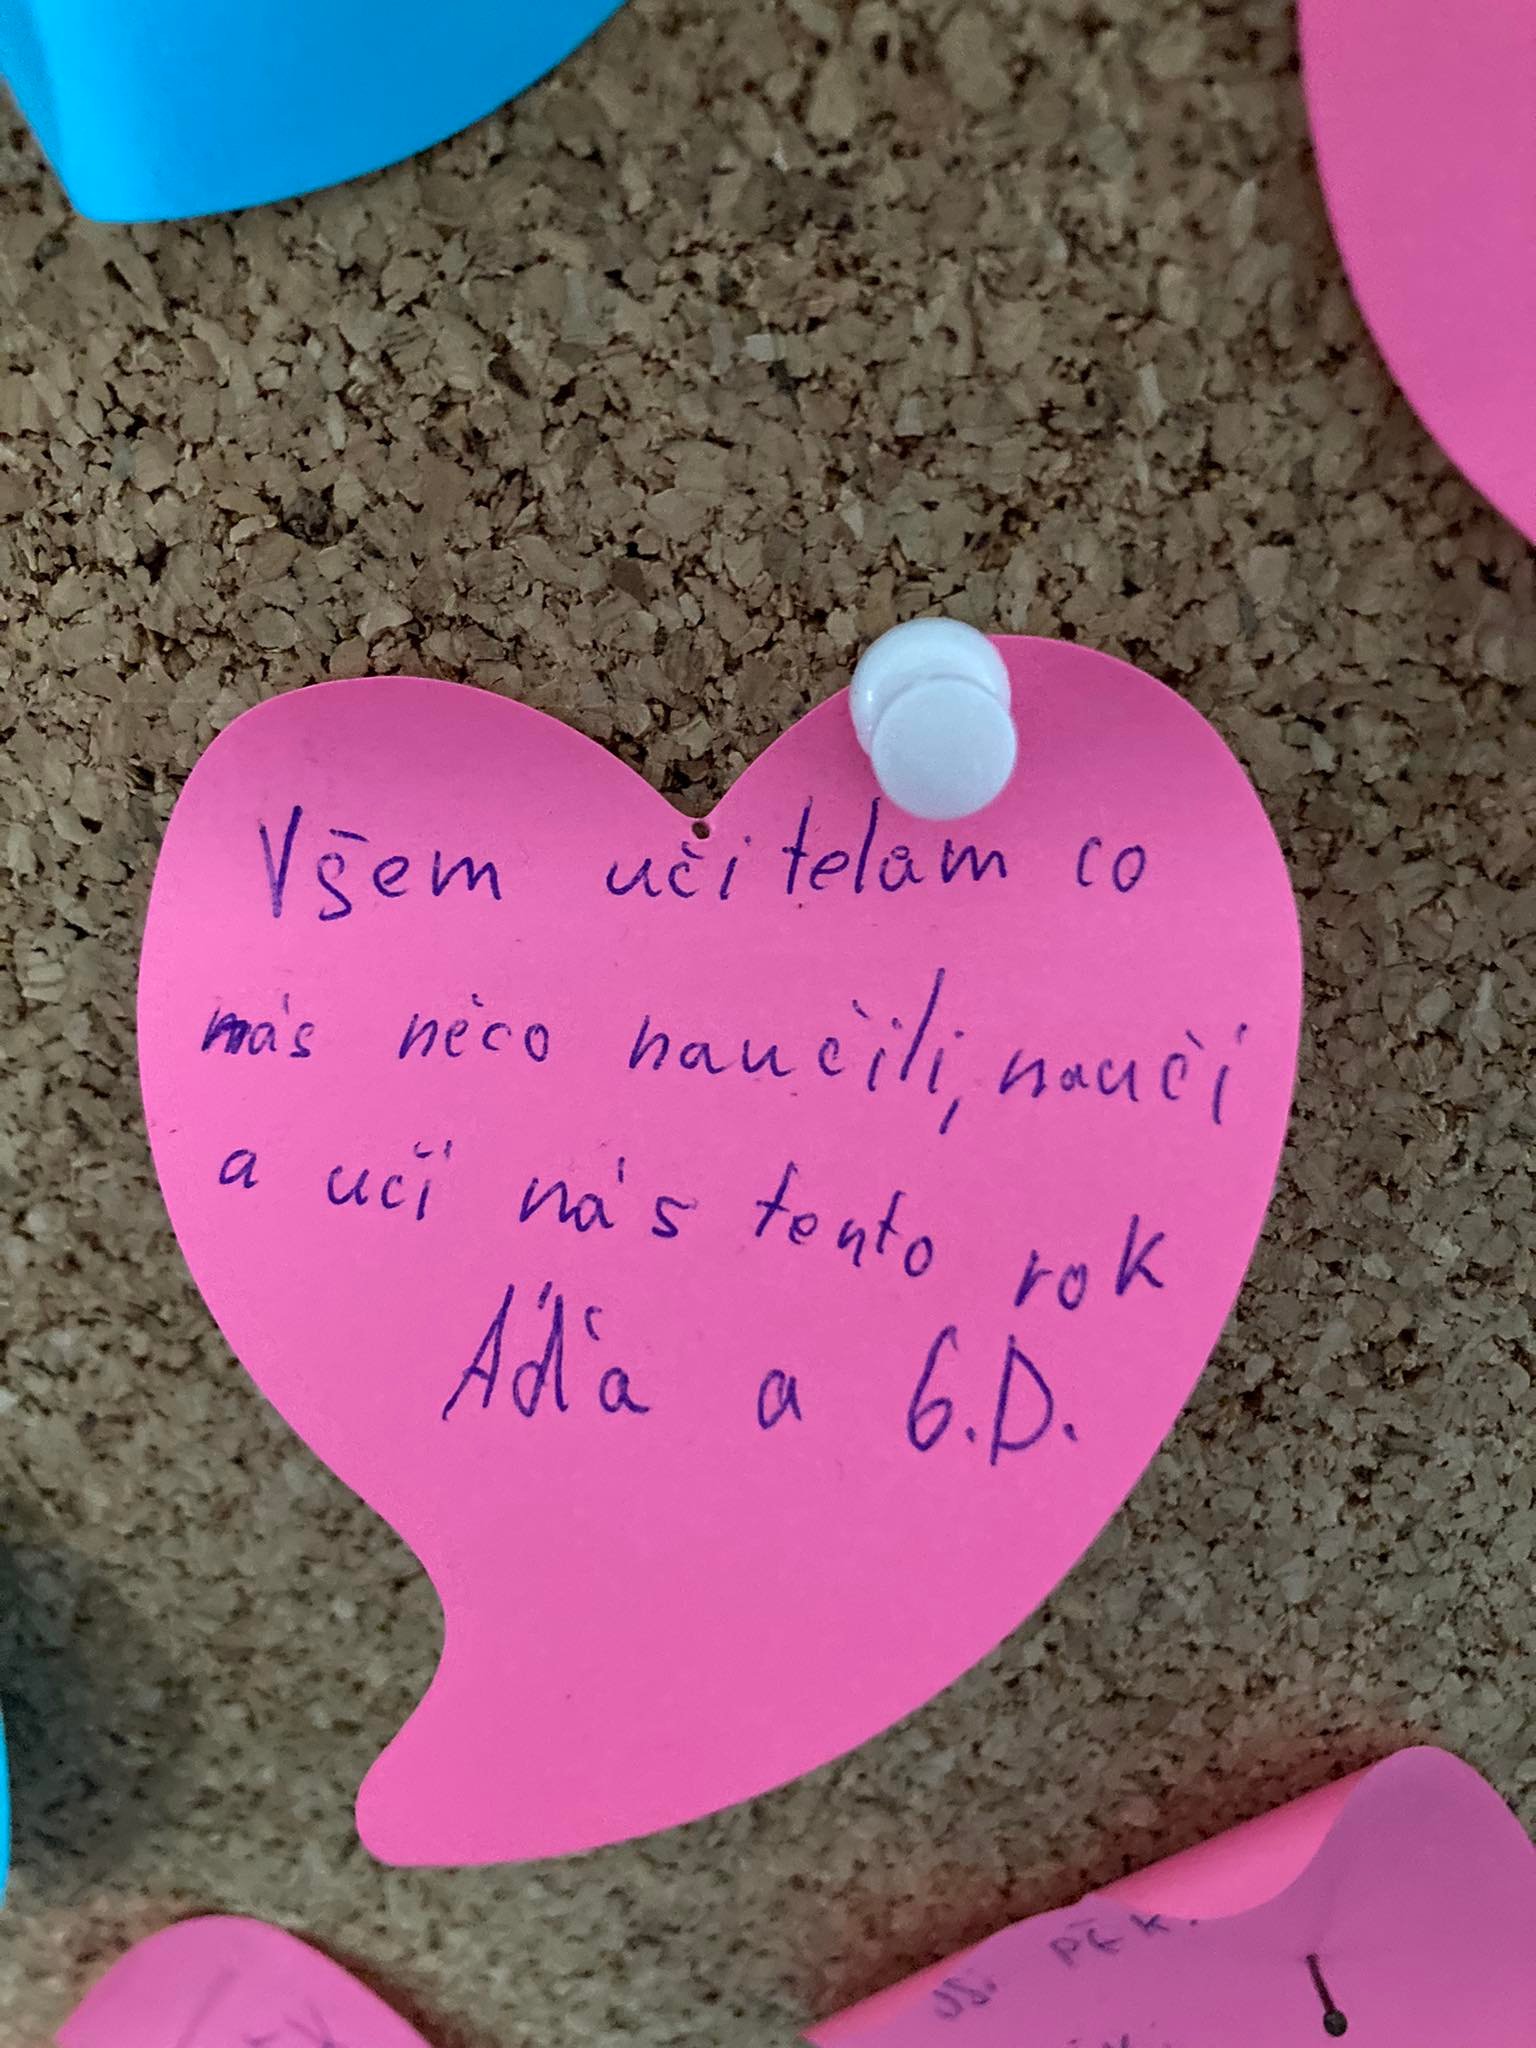 Všem učitelam co
nás něco naučili, naučí
a učí nás tento rok
Áďa a 6.D.